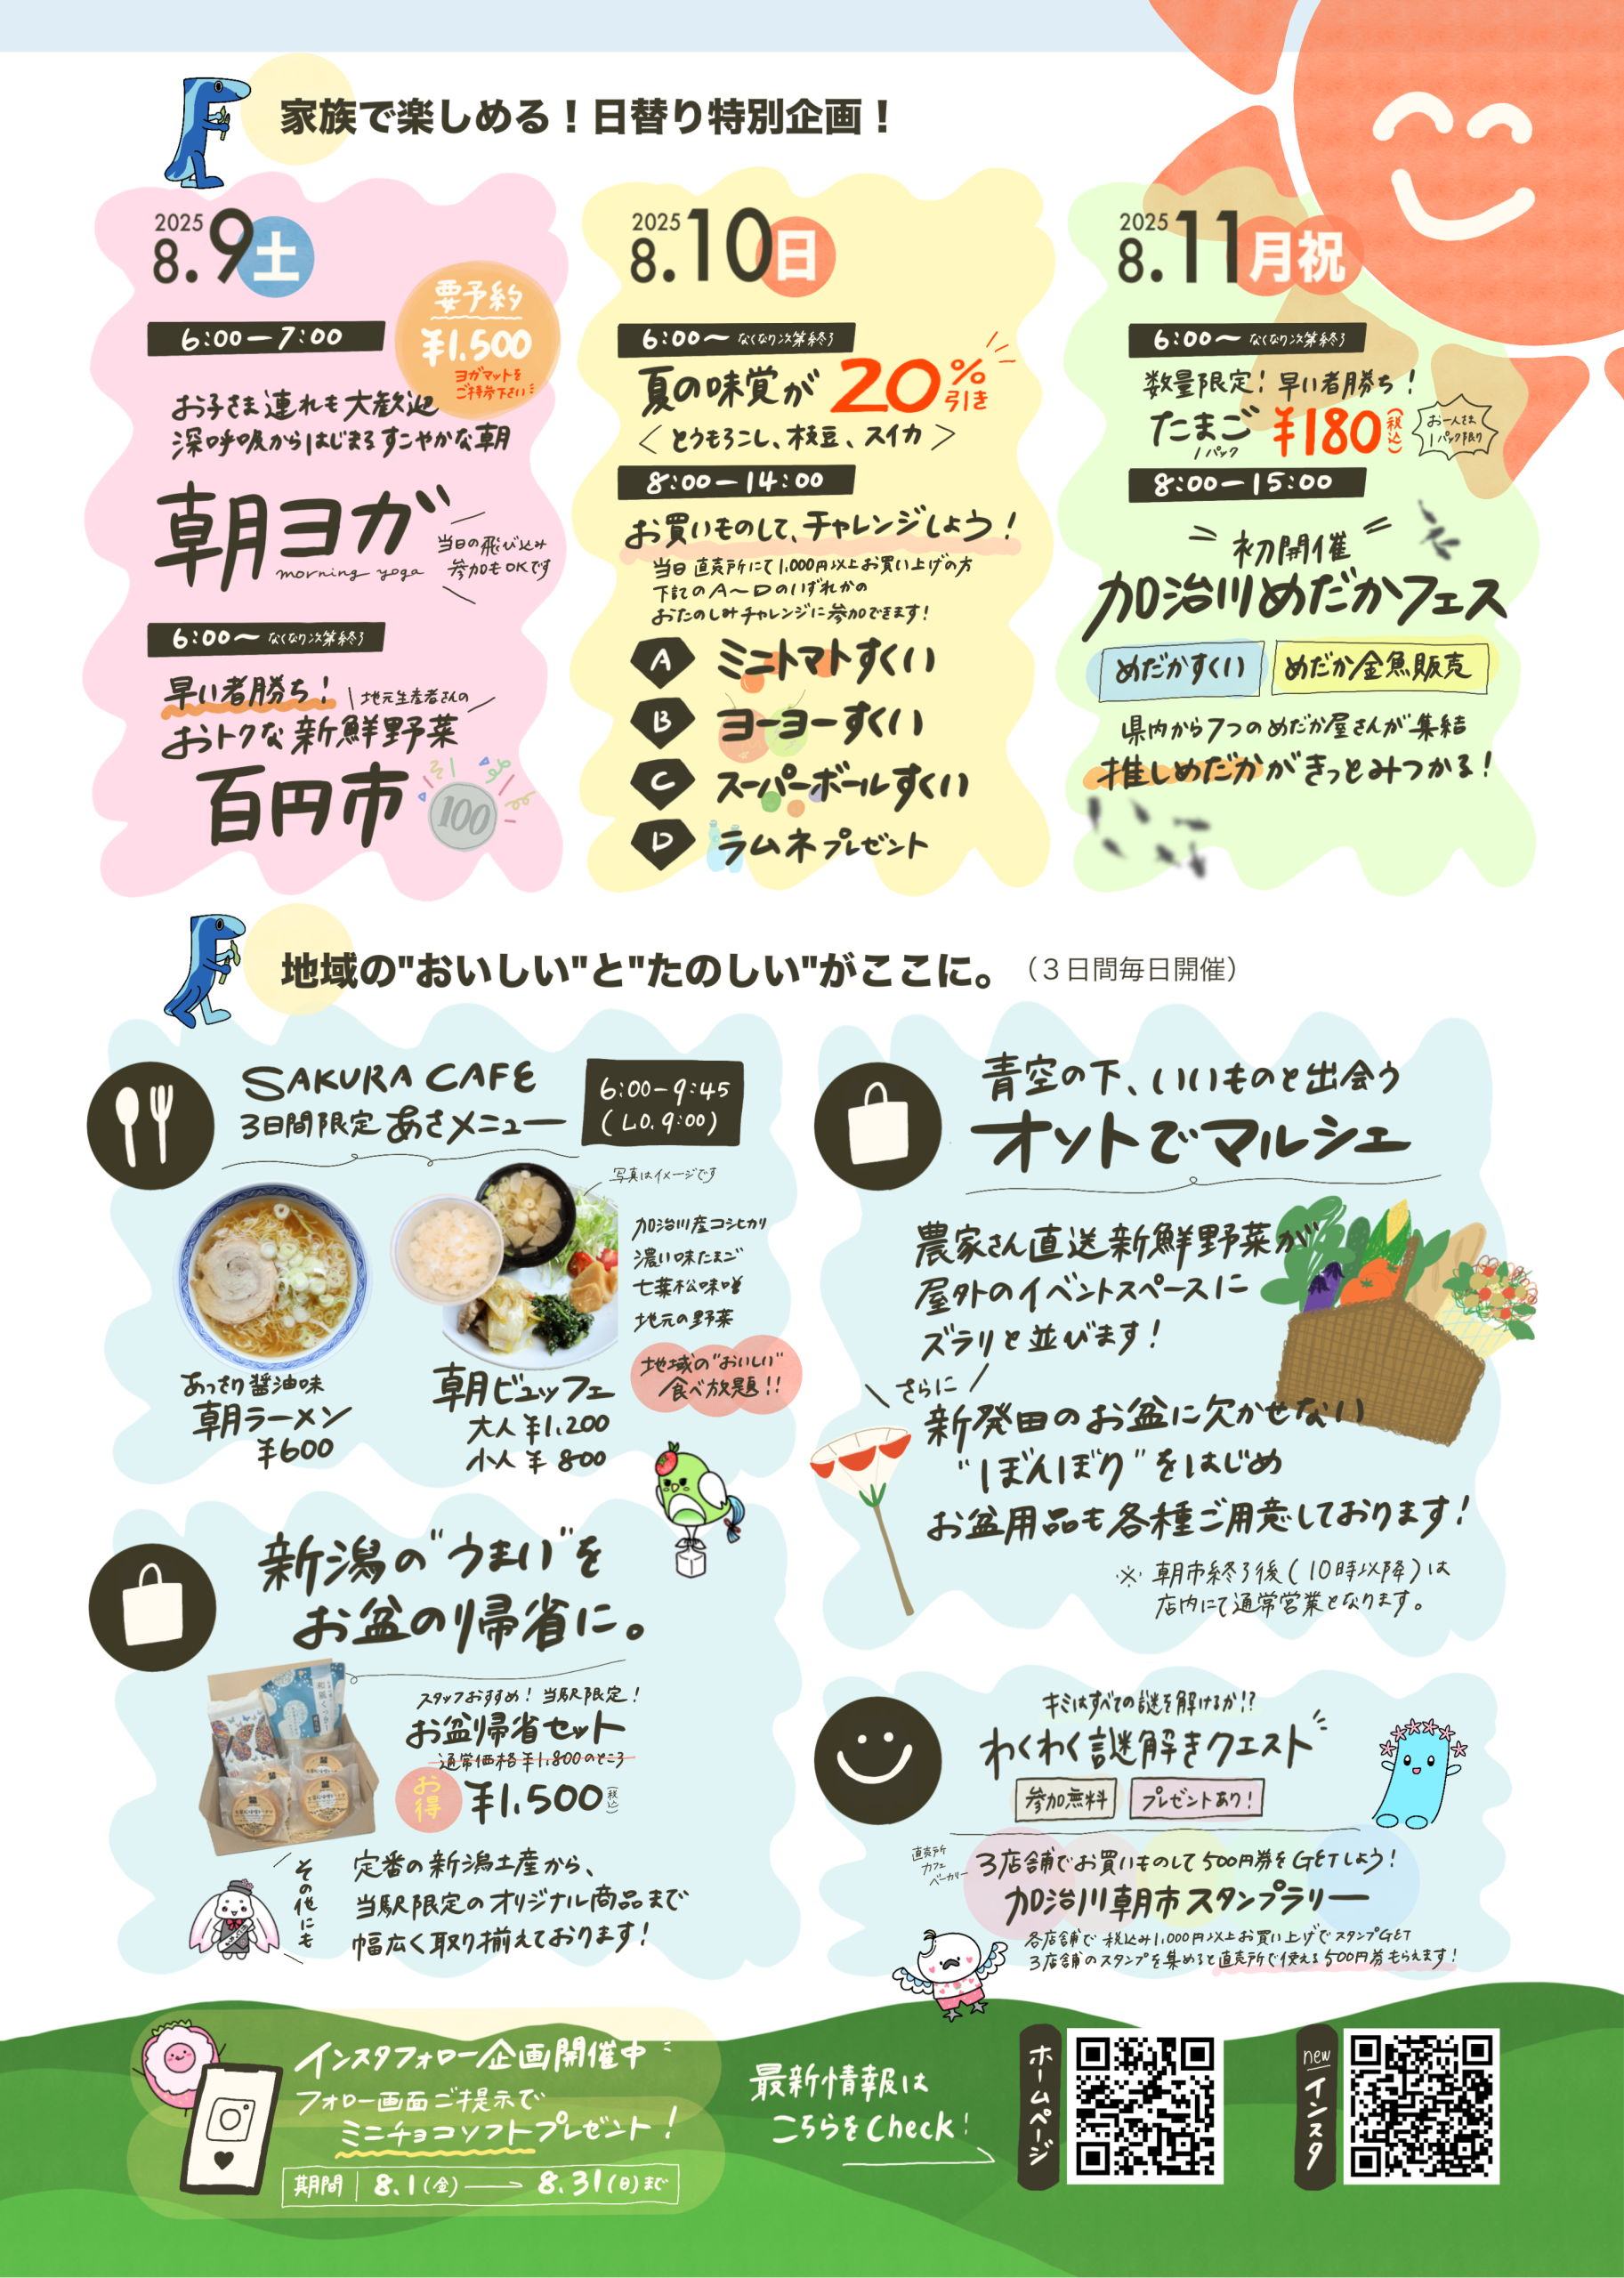 家族で楽しめる！日替り特別企画！
2025
8.9土
要予約
¥1,500
ヨガマットを
ご持参下さい
6:00－7:00
お子さま連れも大歓迎
深呼吸からはじまるすこやかな朝
朝ヨガ
morning yoga
当日の飛び込み
参加もOKです
6:00～なくなり次第終了
早い者勝ち！
地元生産者さんの
おトクな新鮮野菜
百円市
100
2025
8.10日
6:00～なくなり次第終了
夏の味覚が20%引き
＜とうもろこし、枝豆、スイカ＞
8:00－14:00
お買いものして、チャレンジしよう！
当日直売所にて1,000円以上お買い上げの方
下記のA～Dのいずれかの
おたのしみチャレンジに参加できます！
A ミニトマトすくい
B ヨーヨーすくい
C スーパーボールすくい
D ラムネプレゼント
2025
8.11月祝
6:00～なくなり次第終了
数量限定！早い者勝ち！
たまご ¥180（税込）
1パック
お一人さま
1パック限り
8:00－15:00
初開催
加治川めだかフェス
めだかすくい
めだか金魚販売
県内から7つのめだか屋さんが集結
推しめだかがきっとみつかる！
地域の"おいしい"と"たのしい"がここに。（３日間毎日開催）
SAKURA CAFE
3日間限定あさメニュー
6:00－9:45
(L.O. 9:00)
写真はイメージです
加治川産コシヒカリ
濃い味たまご
七葉松味噌
地元の野菜
地域の"おいしい"
食べ放題!!
あっさり醤油味
朝ラーメン
¥600
朝ビュッフェ
大人¥1,200
小人¥800
青空の下、いいものと出会う
オソトでマルシェ
農家さん直送新鮮野菜が
屋外のイベントスペースに
ズラリと並びます！
さらに
新発田のお盆に欠かせない
"ぼんぼり"をはじめ
お盆用品も各種ご用意しております！
※朝市終了後（10時以降）は
店内にて通常営業となります。
新潟の"うまい"を
お盆の帰省に。
スタッフおすすめ！当駅限定！
お盆帰省セット
通常価格¥1,800のところ
お得
¥1,500（税込）
その他にも
定番の新潟土産から、
当駅限定のオリジナル商品まで
幅広く取り揃えております！
キミはすべての謎を解けるか!?
わくわく謎解きクエスト
参加無料
プレゼントあり！
直売所
カフェ
ベーカリー
3店舗でお買いものして500円券をGETしよう！
加治川朝市スタンプラリー
各店舗で税込み1,000円以上お買い上げでスタンプGET
3店舗のスタンプを集めると直売所で使える500円券もらえます！
インスタフォロー企画開催中
フォロー画面ご提示で
ミニチョコソフトプレゼント！
期間 8.1(金)―8.31(日)まで
最新情報は
こちらをCheck！
ホームページ
new
インスタ